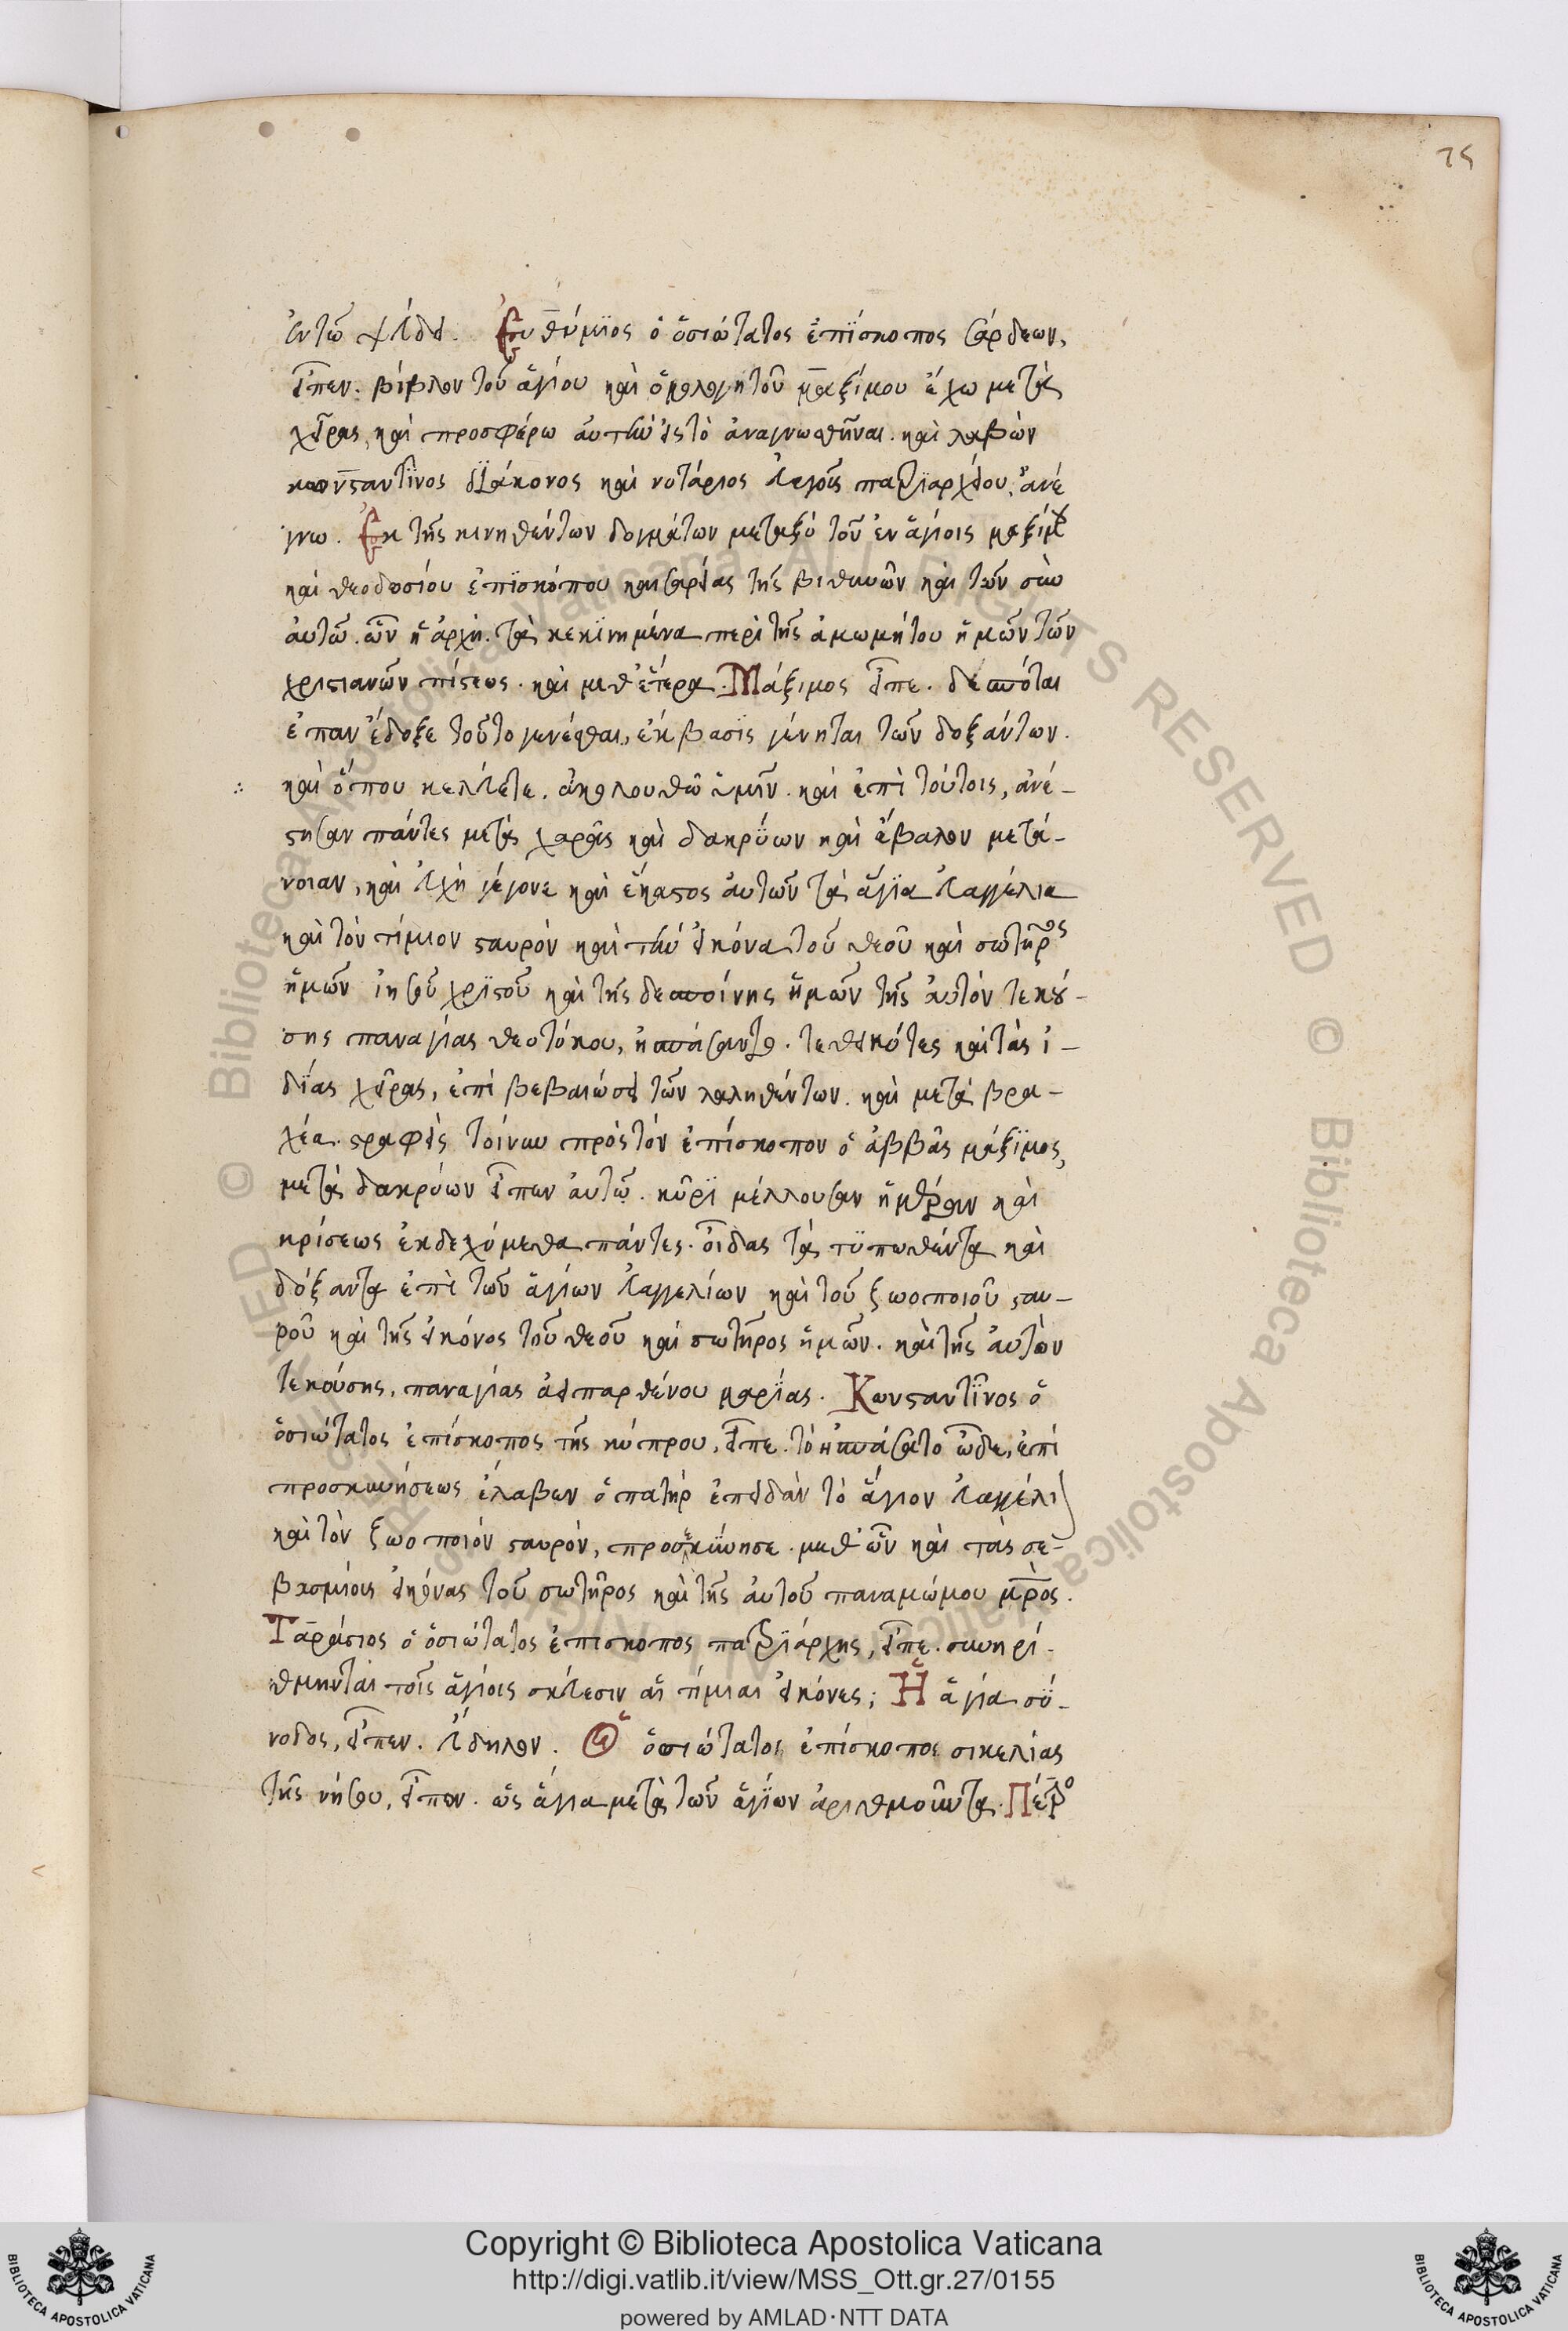 75
ἐν τῶ ψεύδει. Εὐθύμιος ὁ ὁσιώτατος ἐπίσκοπος σάρδεων,
εἶπεν. βίβλον τοῦ ἁγίου καὶ ὁμολογητοῦ μαξίμου ἔχω μετὰ
χεῖρας, καὶ προσφέρω αὐτὴν εἰς τὸ ἀναγνωσθῆναι. καὶ λαβὼν
κωνσταντῖνος διάκονος καὶ νοτάριος εὐαγοῦς πατριαρχείου, ἀνέ
γνω. Ἐκ τῆς κινηθέντων δογμάτων μεταξὺ τοῦ ἐν ἁγίοις μαξίμου
καὶ θεοδοσίου ἐπισκόπου καισαρείας τῆς βιθυνῶν καὶ τῶν σὺν
αὐτῶ. ὧν ἡ ἀρχὴ. τὰ κεκινημένα περὶ τῆς ἀμωμήτου ἡμῶν τῶν
χριστιανῶν πίστεως. καὶ μεθ' ἕτερα. Μάξιμος εἶπε. δεσπόται
ἐπὰν ἔδοξε τοῦτο γενέσθαι, ἔκβασις γένηται τῶν δοξάντων.
καὶ ὅπου κελεύετε. ἀκολουθῶ ὑμῖν. καὶ ἐπὶ τούτοις, ἀνέ-
στησαν πάντες μετὰ χαρᾶς καὶ δακρύων καὶ ἔβαλον μετά-
νοιαν, καὶ εὐχὴ γέγονε καὶ ἕκαστος αὐτῶν τὰ ἅγια εὐαγγέλια
καὶ τὸν τίμιον σταυρὸν καὶ τὴν εἰκόνα τοῦ θεοῦ καὶ σωτῆρος
ἡμῶν ἰησοῦ χριστοῦ καὶ τῆς δεσποίνης ἡμῶν τῆς αὐτὸν τεκού-
σης παναγίας θεοτόκου, ἠσπάσαντο. τεθεικότες καὶ τὰς ἰ-
δίας χεῖρας, ἐπὶ βεβαιώσει τῶν λαληθέντων. καὶ μετὰ βρα-
χέα. στραφεὶς τοίνυν πρὸς τὸν ἐπίσκοπον ὁ ἀββᾶς μάξιμος,
μετὰ δακρύων εἶπεν αὐτῶ. κῦρι μέλλουσαν ἡμέραν καὶ
κρίσεως ἐκδεχόμεθα πάντες. οἶδας τὰ τυπωθέντα καὶ
δόξαντα ἐπὶ τῶν ἁγίων εὐαγγελίων καὶ τοῦ ζωοποιοῦ σταυ-
ροῦ καὶ τῆς εἰκόνος τοῦ θεοῦ καὶ σωτῆρος ἡμῶν. καὶ τῆς αὐτὸν
τεκούσης, παναγίας ἀειπαρθένου μαρίας. Κωνσταντῖνος ὁ
ὁσιώτατος ἐπίσκοπος τῆς κύπρου, εἶπε. τὸ ἠσπάσατο ὧδε, ἐπὶ
προσκυνήσεως ἔλαβεν ὁ πατὴρ ἐπειδὰν τὸ ἅγιον εὐαγγέλι
καὶ τὸν ζωοποιὸν σταυρὸν, προσεκύνησε. μεθ' ὧν καὶ τὰς σε-
βασμίοις εἰκόνας τοῦ σωτῆρος καὶ τῆς αὐτοῦ παναμώμου μρος.
Ταράσιος ὁ ὁσιώτατος ἐπισκοπος πατριάρχης, εἶπε. συνηρί-
θμηνται τοῖς ἁγίοις σκεύεσιν αἱ τίμιαι εἰκόνες; Ἡ ἁγία σύ-
νοδος, εἶπεν. εὔδηλον. Ὁ ὁσιώτατος ἐπίσκοπος σικελίας
τῆς νήσου, εἶπεν. ὡς ἅγια μετὰ τῶν ἁγίων ἀριθμοῦντα. Πέτρο
Copyright © Biblioteca Apostolica Vaticana
http://digi.vatlib.it/view/MSS_Ott.gr.27/0155
powered by AMLAD·NTT DATA